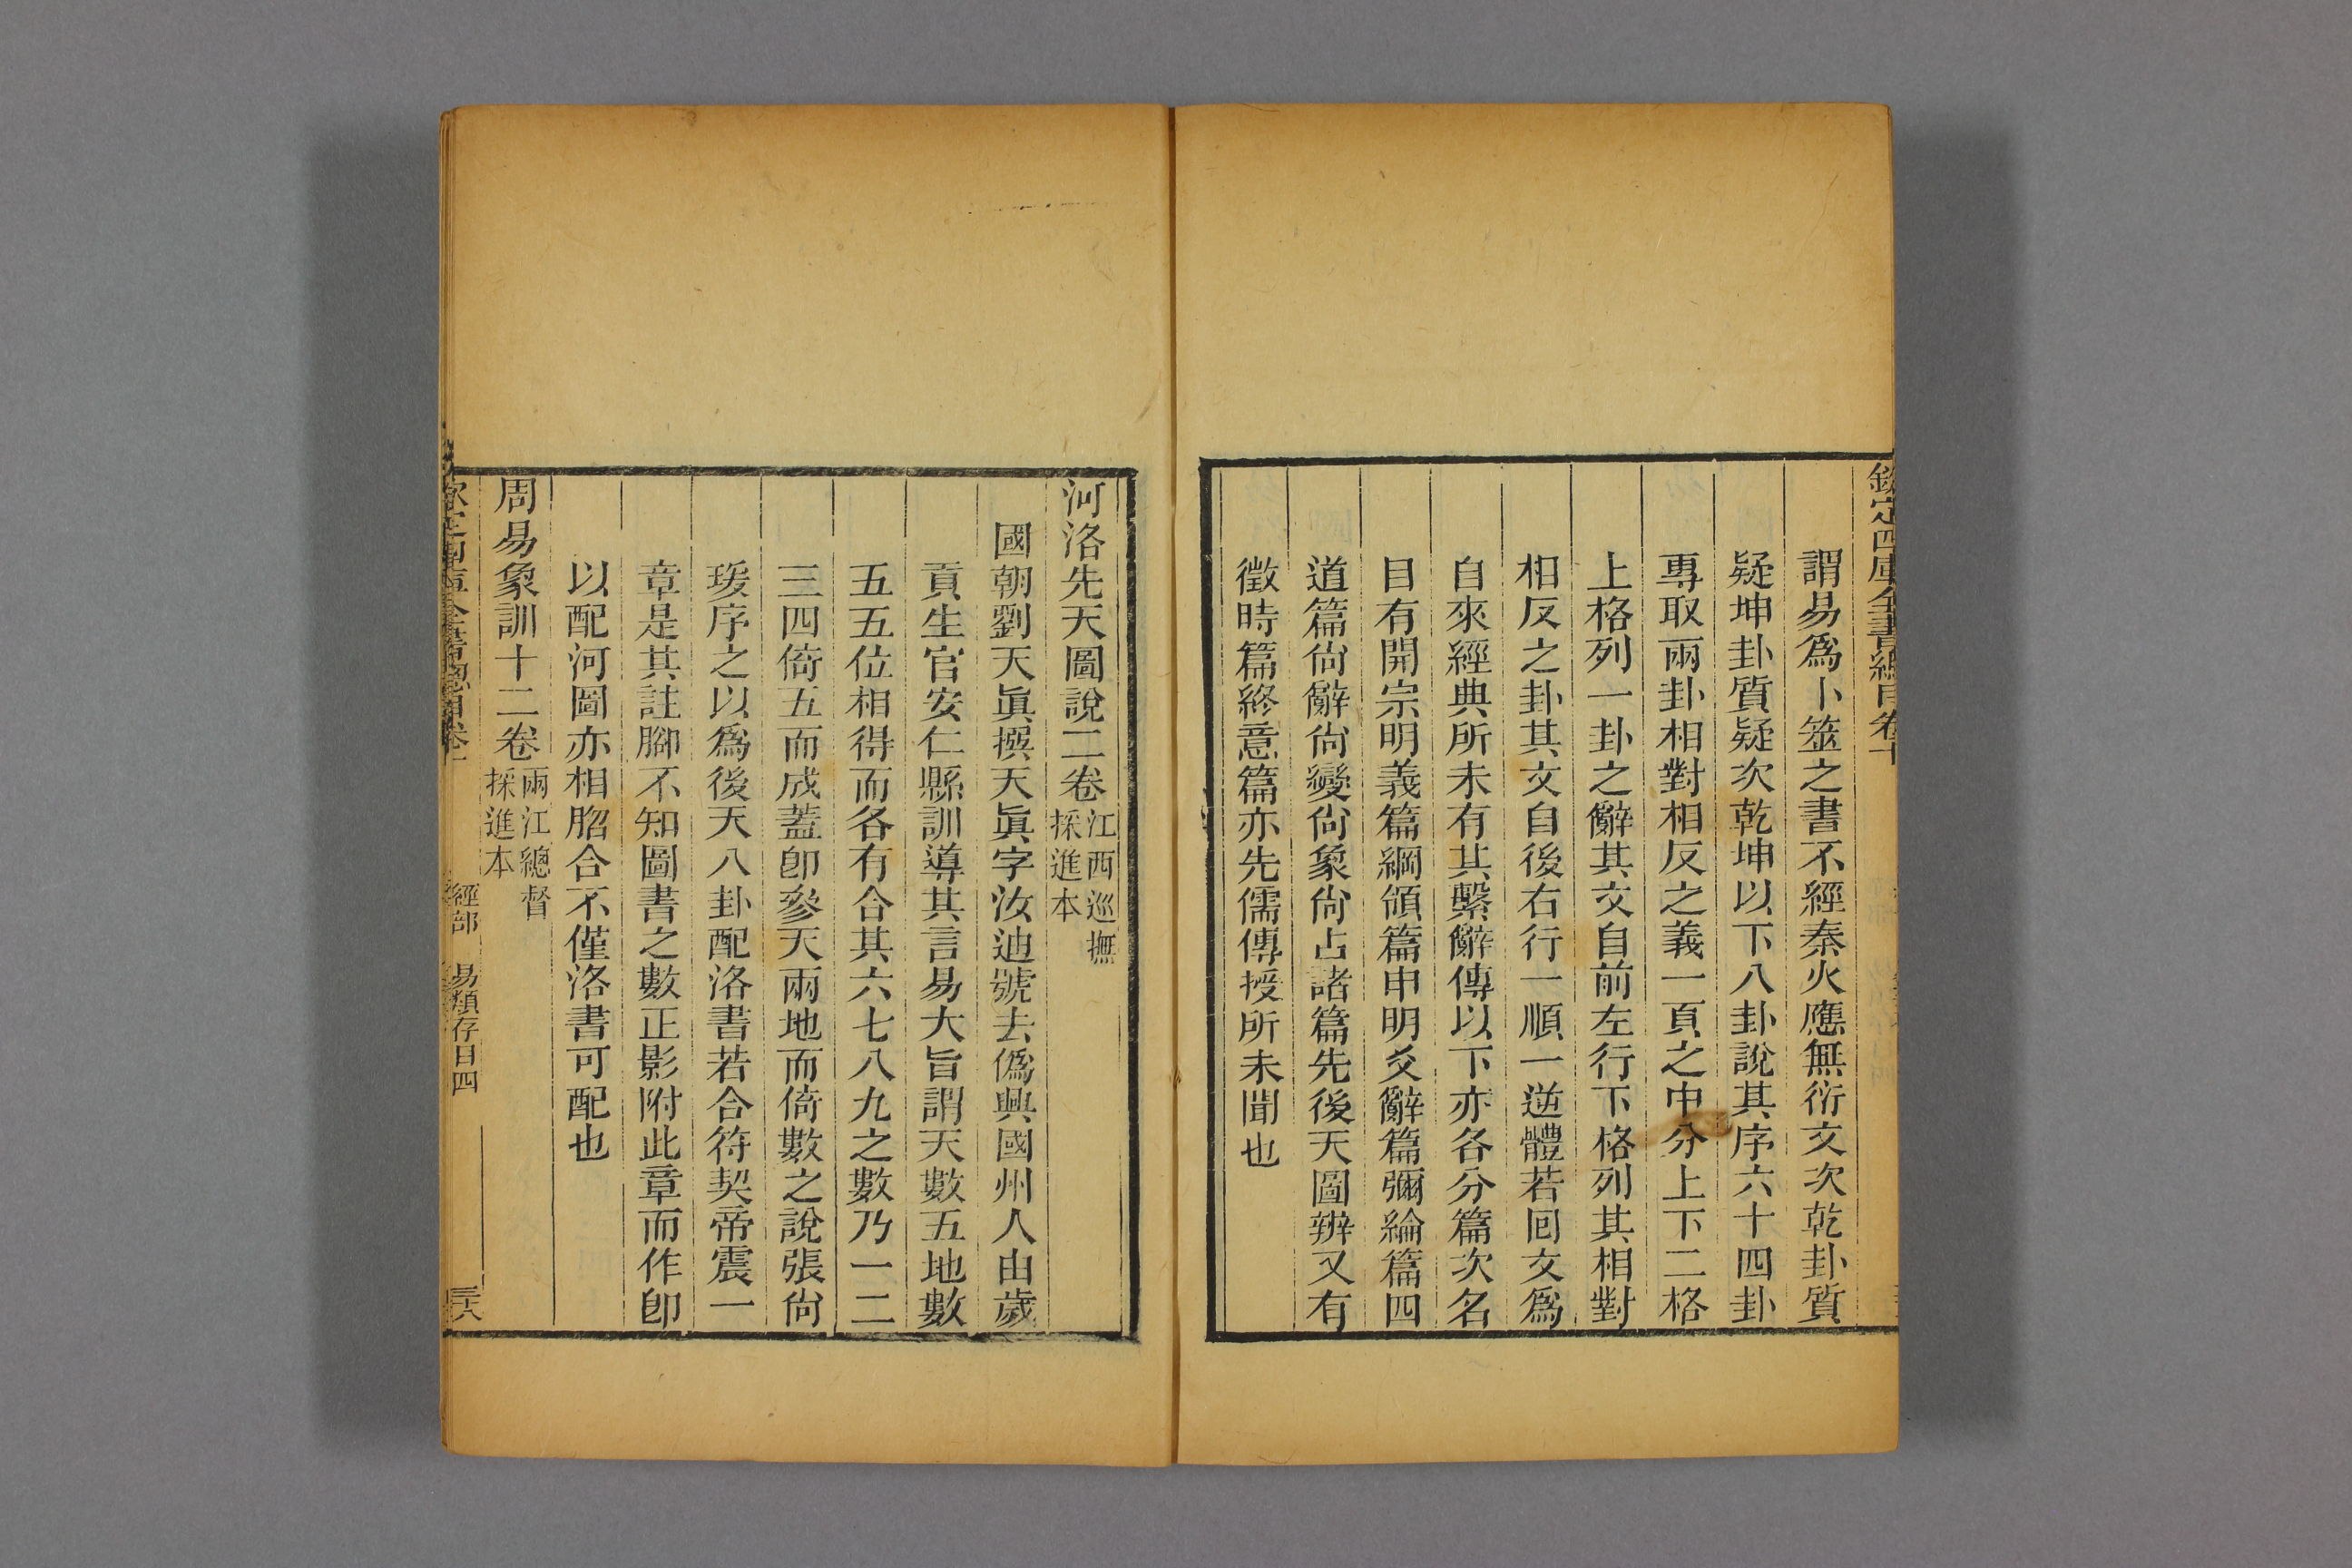 欽定四庫全書總目卷十
謂易爲卜筮之書不經秦火應無衍文次乾卦質
疑坤卦質疑次乾坤以下八卦說其序六十四卦
專取兩卦相對相反之義一頁之中分上下二格
上格列一卦之辭其文自前左行下格列其相對
相反之卦其文自後右行一順一逆體若囘文爲
自來經典所未有其繫辭傳以下亦各分篇次名
目有開宗明義篇綱領篇申明爻辭篇彌綸篇四
道篇尙辭尙變尙象尙占諸篇先後天圖辨又有
徵時篇終意篇亦先儒傳授所未聞也
河洛先天圖說二卷
江西巡撫
採進本
國朝劉天眞撰天眞字汝迪號去僞興國州人由歲
貢生官安仁縣訓導其言易大旨謂天數五地數
五五位相得而各有合其六七八九之數乃一二
三四倚五而成蓋卽參天兩地而倚數之說張尙
瑗序之以爲後天八卦配洛書若合符契帝震一
章是其註腳不知圖書之數正影附此章而作卽
以配河圖亦相脗合不僅洛書可配也
周易象訓十二卷
兩江總督
採進本
欽定四庫全書總目卷十
經部 易類存目四
三六